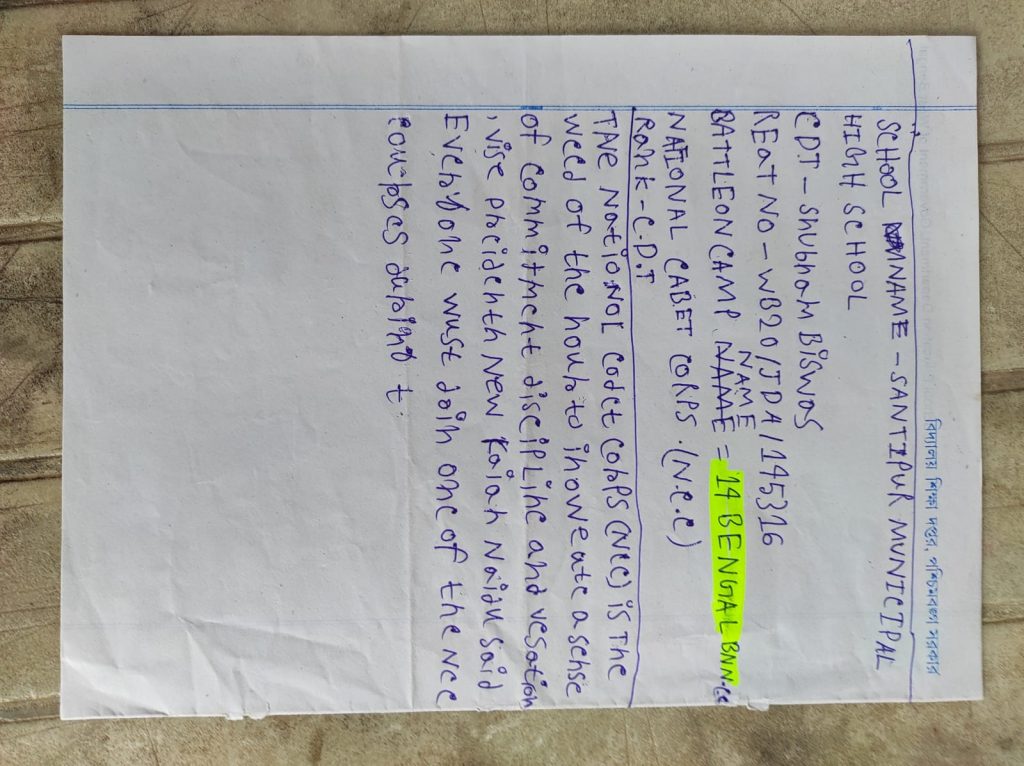 বিদ্যালয় শিক্ষা দপ্তর, পশ্চিমবঙ্গ সরকার
SCHOOL NAME - SANTIPUR MUNICIPAL
HIGH SCHOOL
CDT - Shubham Biswas
REat NO - WB20/JDA/145316
BATTLEON CAMP NAME = 14 BENGAL BNN-CC
NATIONAL CABET CORPS. (N.C.C)
Rank - C.D.T
TAVE NatioNOL Codet CORPS (NCC) is The
weed of the hour to inoweate a sehse
of commitment discipline and vesation
, vise phcidehth New Kaiah Naidu said
Everyone wust doin one of the NCC
Courses dabing t